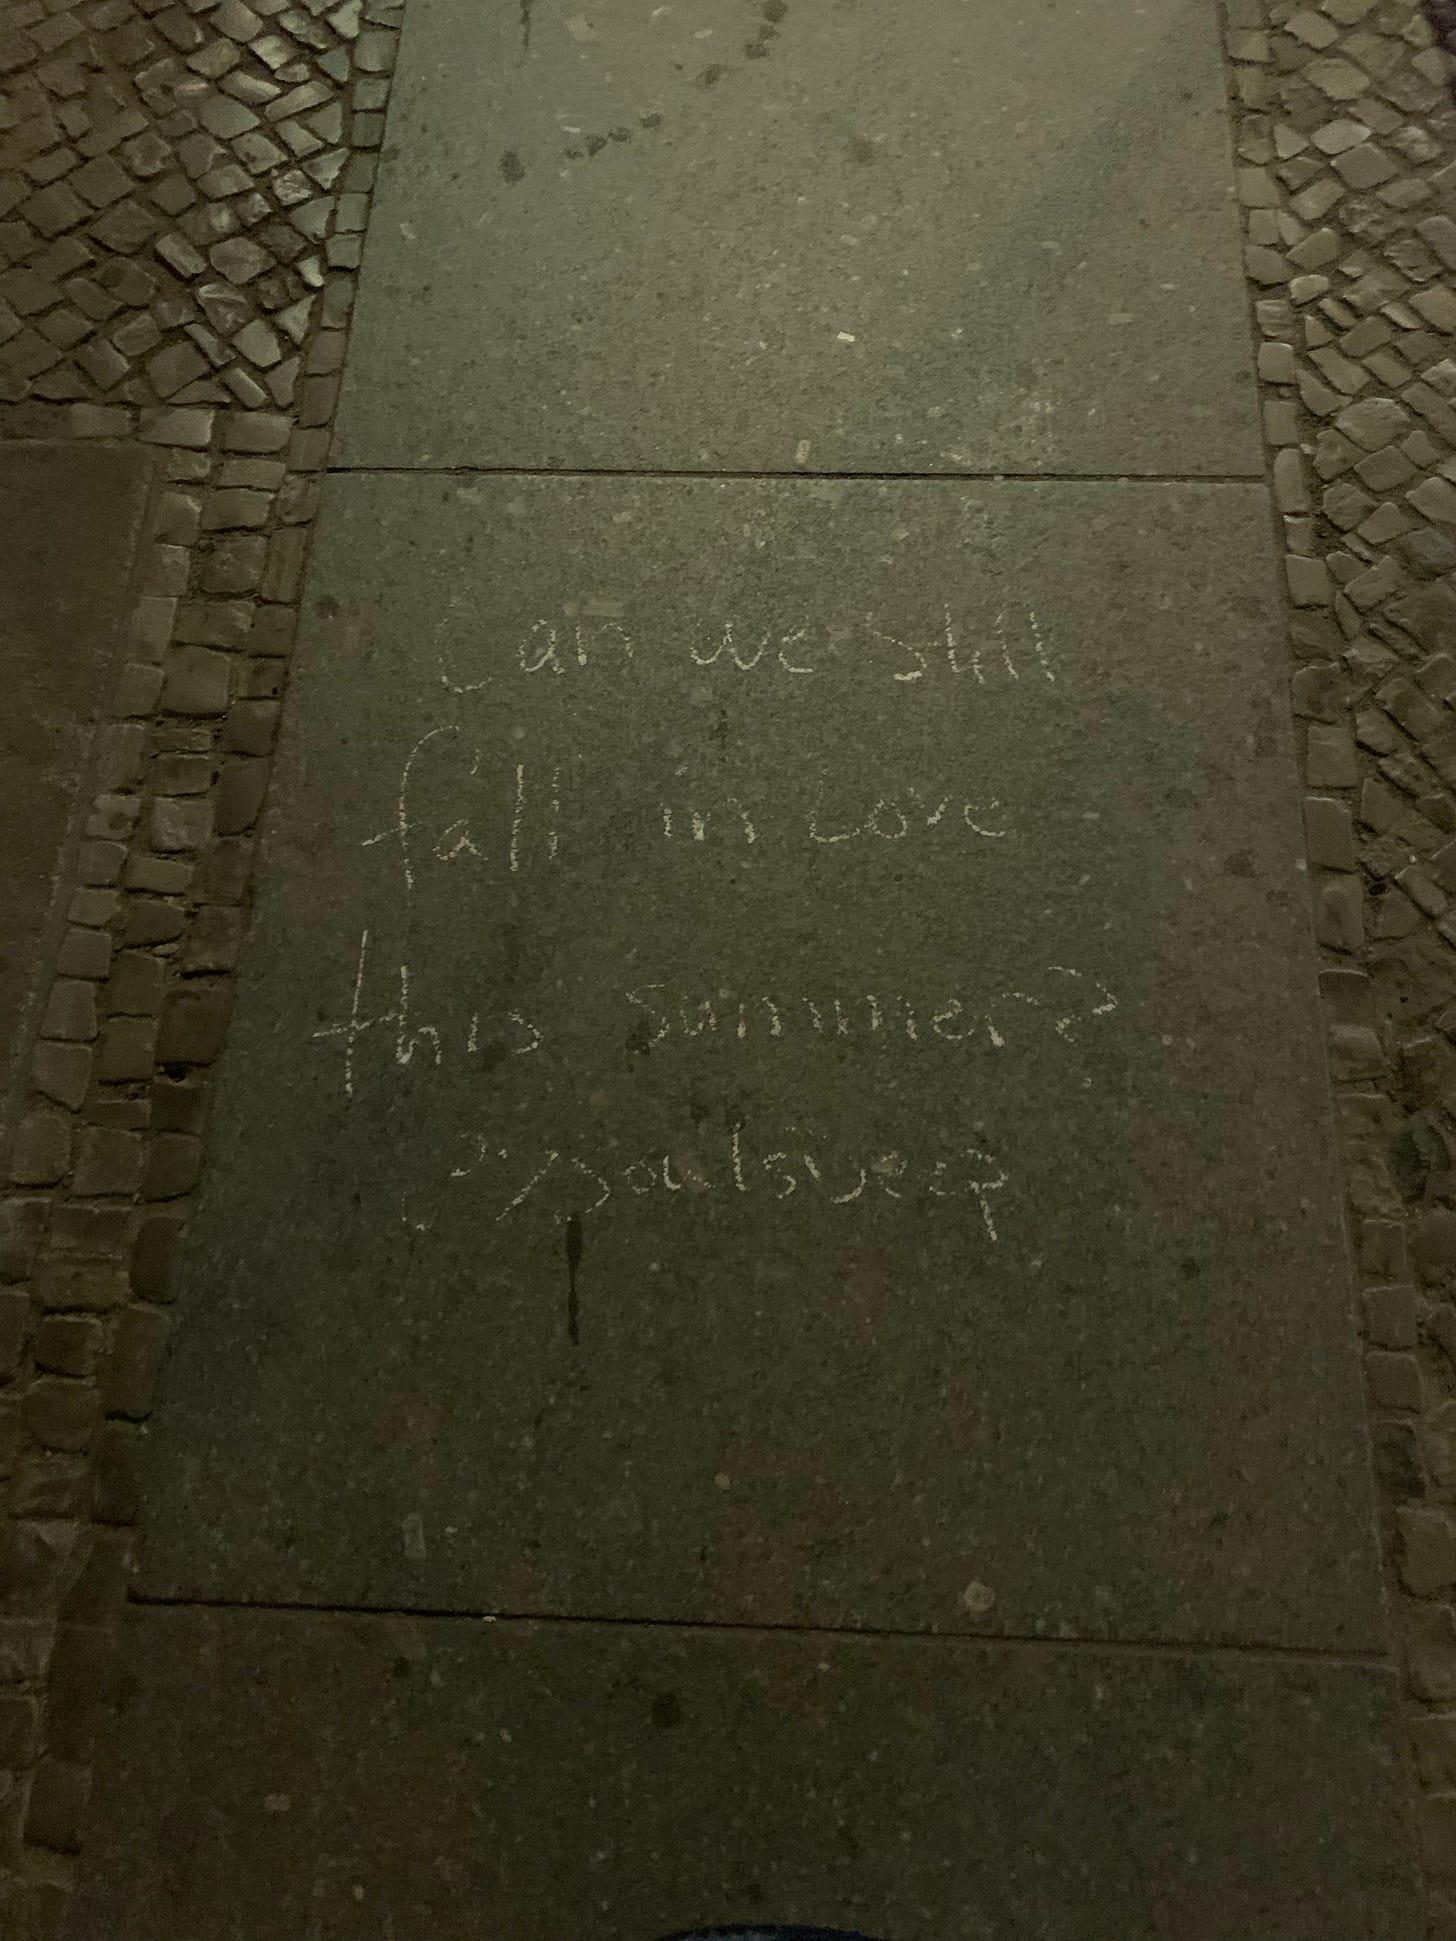 Can we still
fall in Love
this summer?